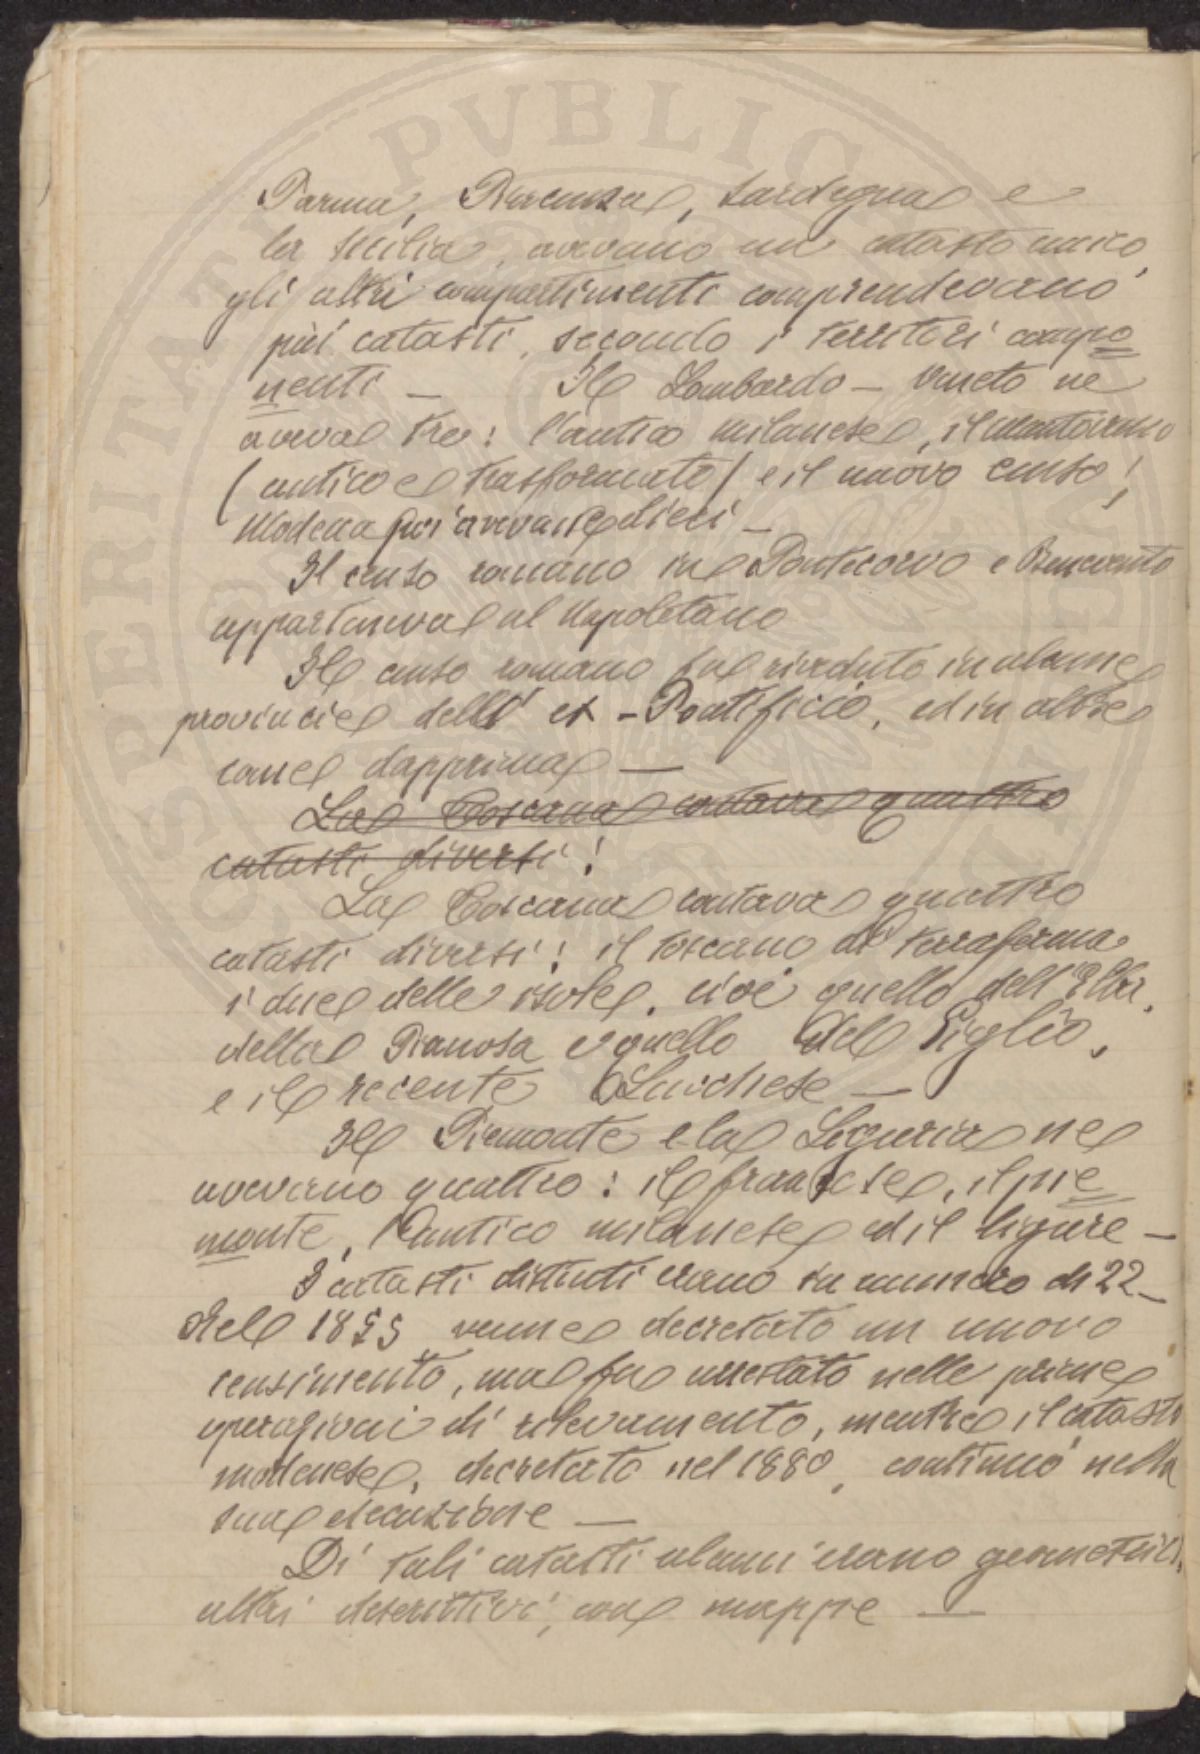 Parma, Piacenza, Sardegna e
la Sicilia, avevano un catasto unico,
gli altri compartimenti comprendevano
più catasti, secondo i territori compo
nenti — Il Lombardo - Veneto ne
aveva tre: l'antico milanese, il mantovano
(antico e trasformato) e il nuovo censo;
Modena poi ne aveva dieci —
Il censo romano in Pontecorvo e Benevento
apparteneva al Napoletano
Il censo romano fu riveduto in alcune
provincie dell' ex - Pontificio, ed in altre
come dapprima —
La Toscana contava quattro
catasti diversi:
La Toscana contava quattro
catasti diversi: il toscano di terraferma
i due delle isole, cioè quello dell'Elba,
della Pianosa e quello del Giglio,
e il recente Lucchese —
Il Piemonte e la Liguria ne
avevano quattro: il francese, il pie
monte, l'antico milanese ed il ligure —
I catasti distinti erano in numero di 22 —
Nel 1855 venne decretato un nuovo
censimento, ma fu arrestato nelle prime
operazioni di rilevamento, mentre il catasto
modenese, decretato nel 1880, continuò nella
sua esecuzione —
Di tali catasti alcuni erano geometrici,
altri descrittivi, con mappe —
SPERITATI PVBLIC